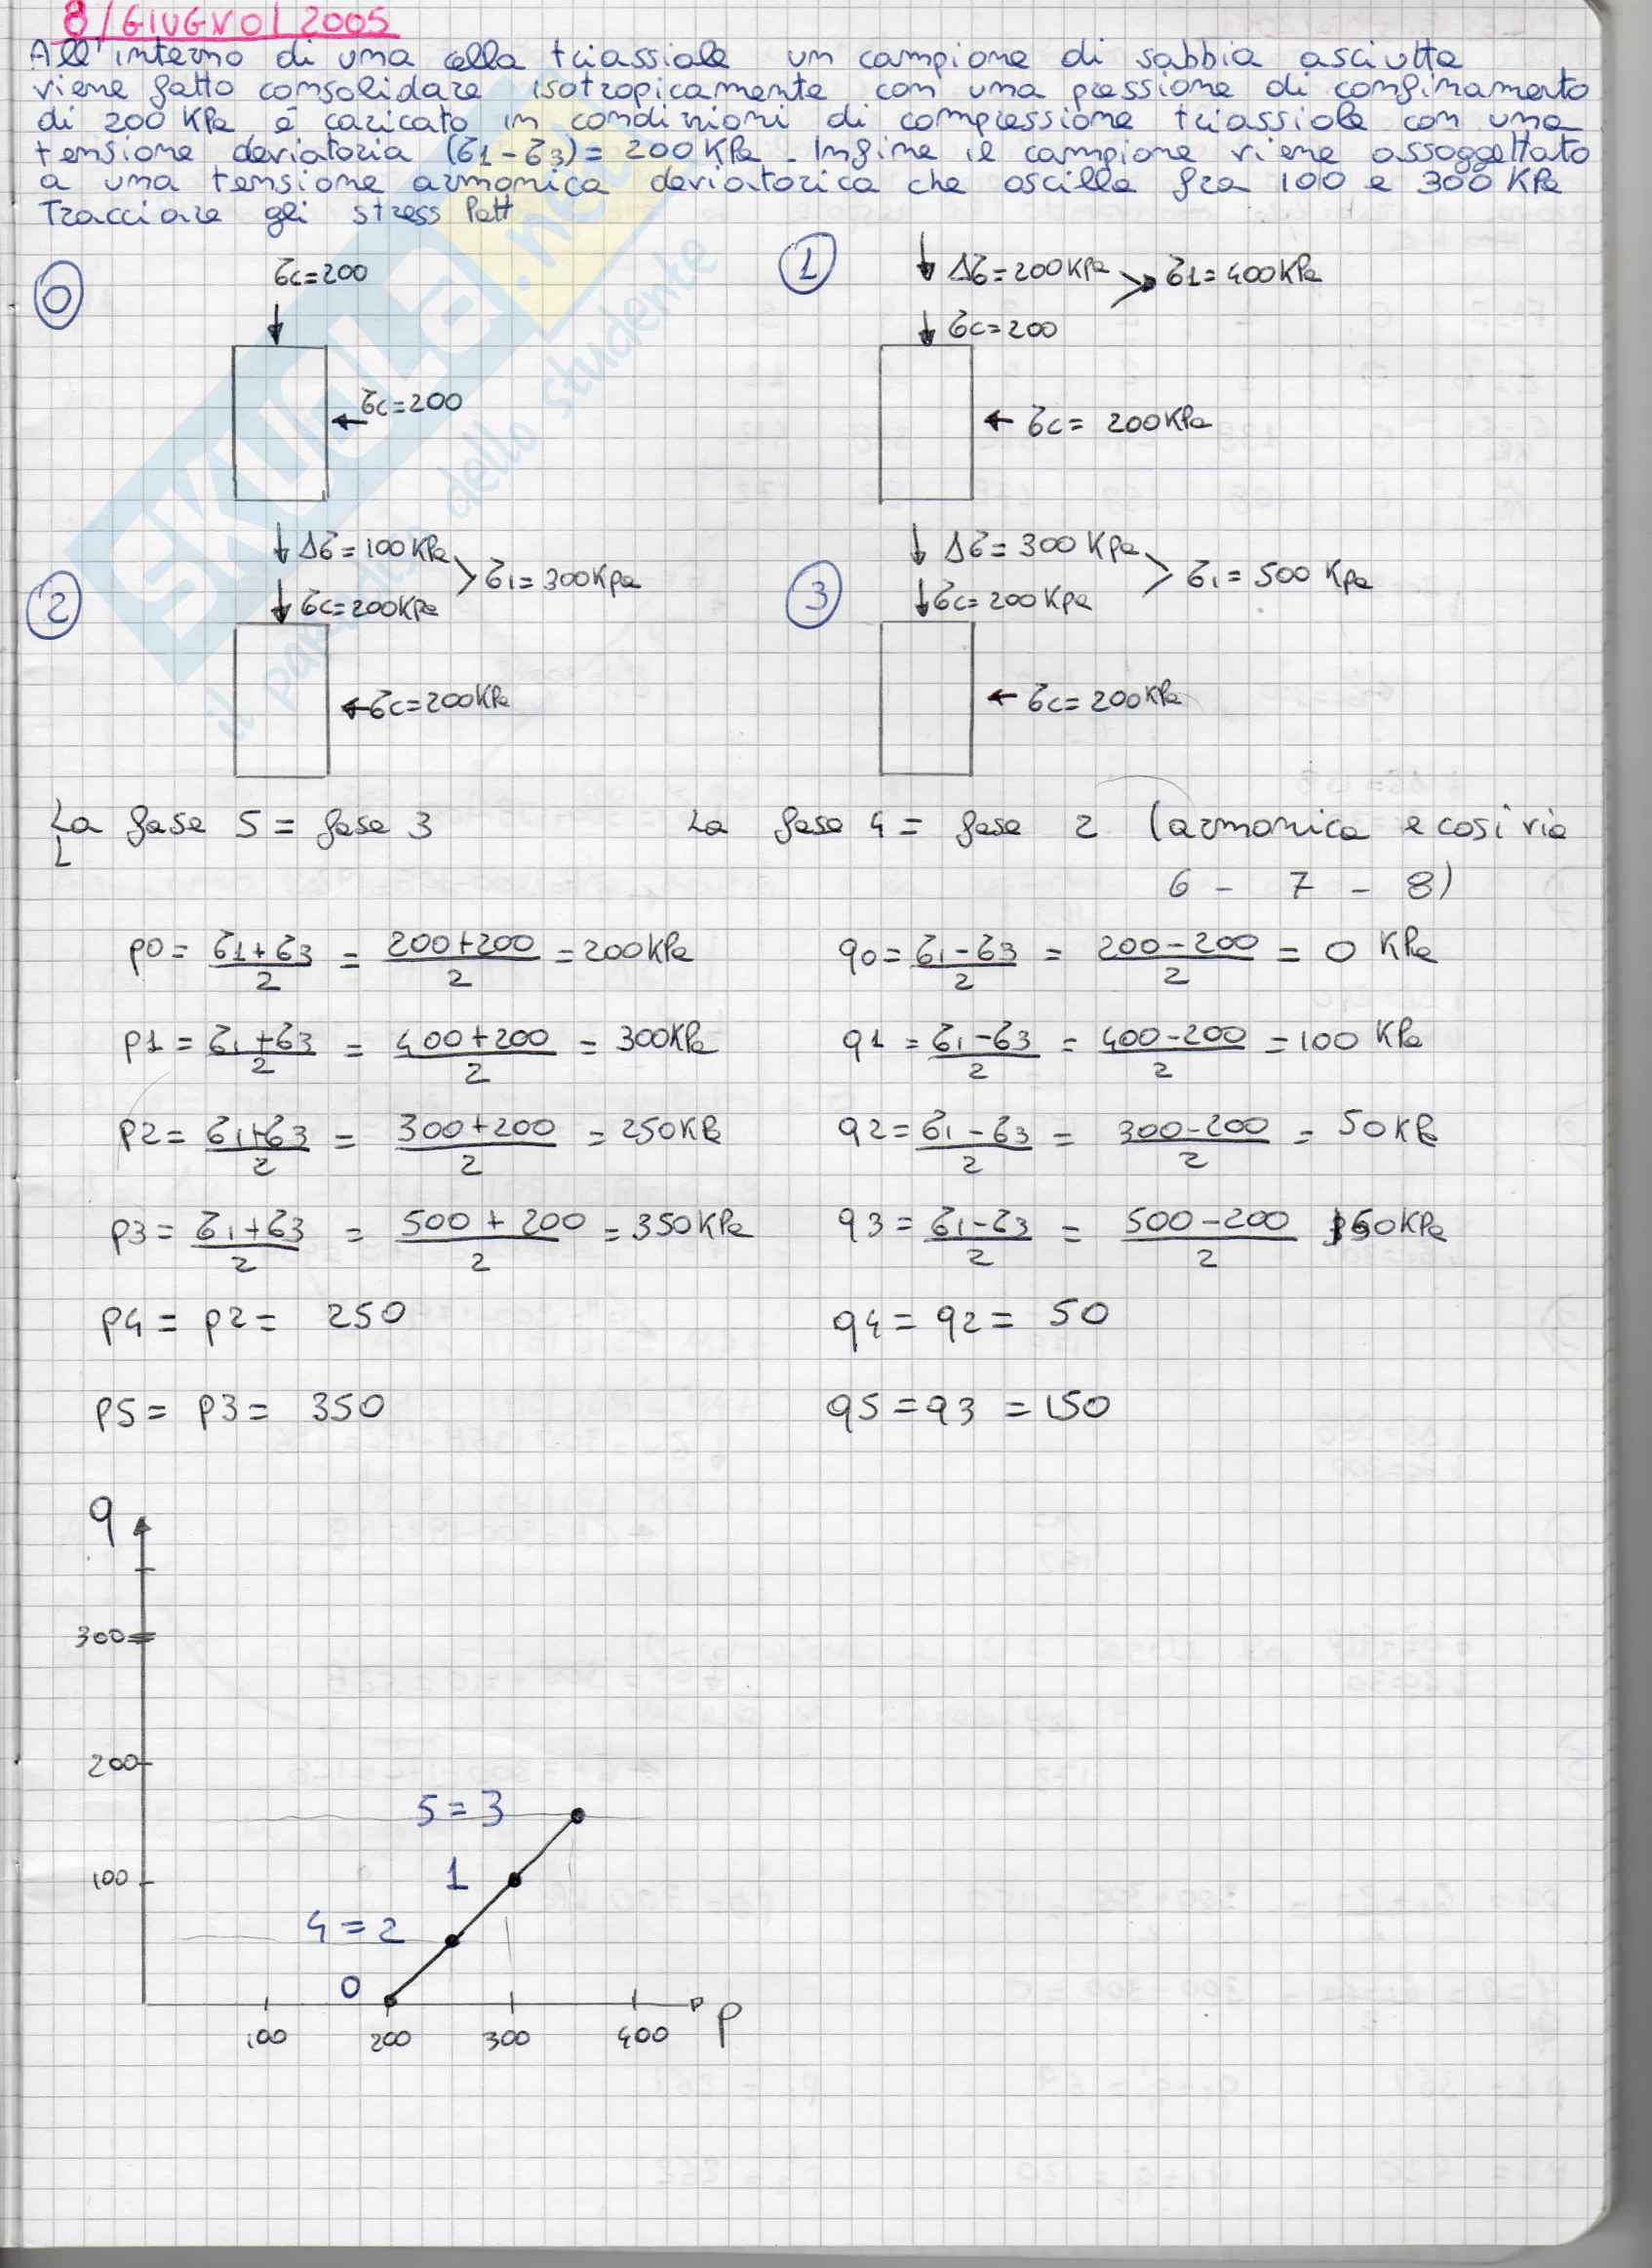 8/GIUGNO/2005
All'interno di una cella triassiale un campione di sabbia asciutta
viene fatto consolidare isotropicamente con una pressione di confinamento
di 200 KPa e caricato in condizioni di compressione triassiale con una
tensione deviatoria (σ1-σ3)= 200 KPa. Infine il campione viene assoggettato
a una tensione armonica deviatorica che oscilla fra 100 e 300 KPa
Tracciare gli stress Patt
0
σc=200
σc=200
1
Δσ=200KPa
σ1=400KPa
σc=200
σc= 200KPa
2
Δσ=100KPa
σ1=300KPa
σc=200KPa
σc=200KPa
3
Δσ=300 KPa
σ1=500 KPa
σc=200KPa
σc=200KPa
La fase 5 = fase 3 La fase 4 = fase 2 (armonica e cosi via
6 - 7 - 8)
p0= σ1+σ3/2 = 200+200/2 = 200KPa q0= σ1-σ3/2 = 200-200/2 = 0 KPa
p1= σ1+σ3/2 = 400+200/2 = 300KPa q1 = σ1-σ3/2 = 400-200/2 = 100 KPa
p2= σ1+σ3/2 = 300+200/2 = 250KPa q2= σ1-σ3/2 = 300-200/2 = 50KPa
p3= σ1+σ3/2 = 500+200/2 = 350KPa q3= σ1-σ3/2 = 500-200/2 150KPa
p4= p2= 250 q4= q2= 50
p5= p3= 350 q5=q3 =150
q
300
200
100
5=3
1
4=2
0
100 200 300 400 p
SKUOLA.net
il paradiso dello studente